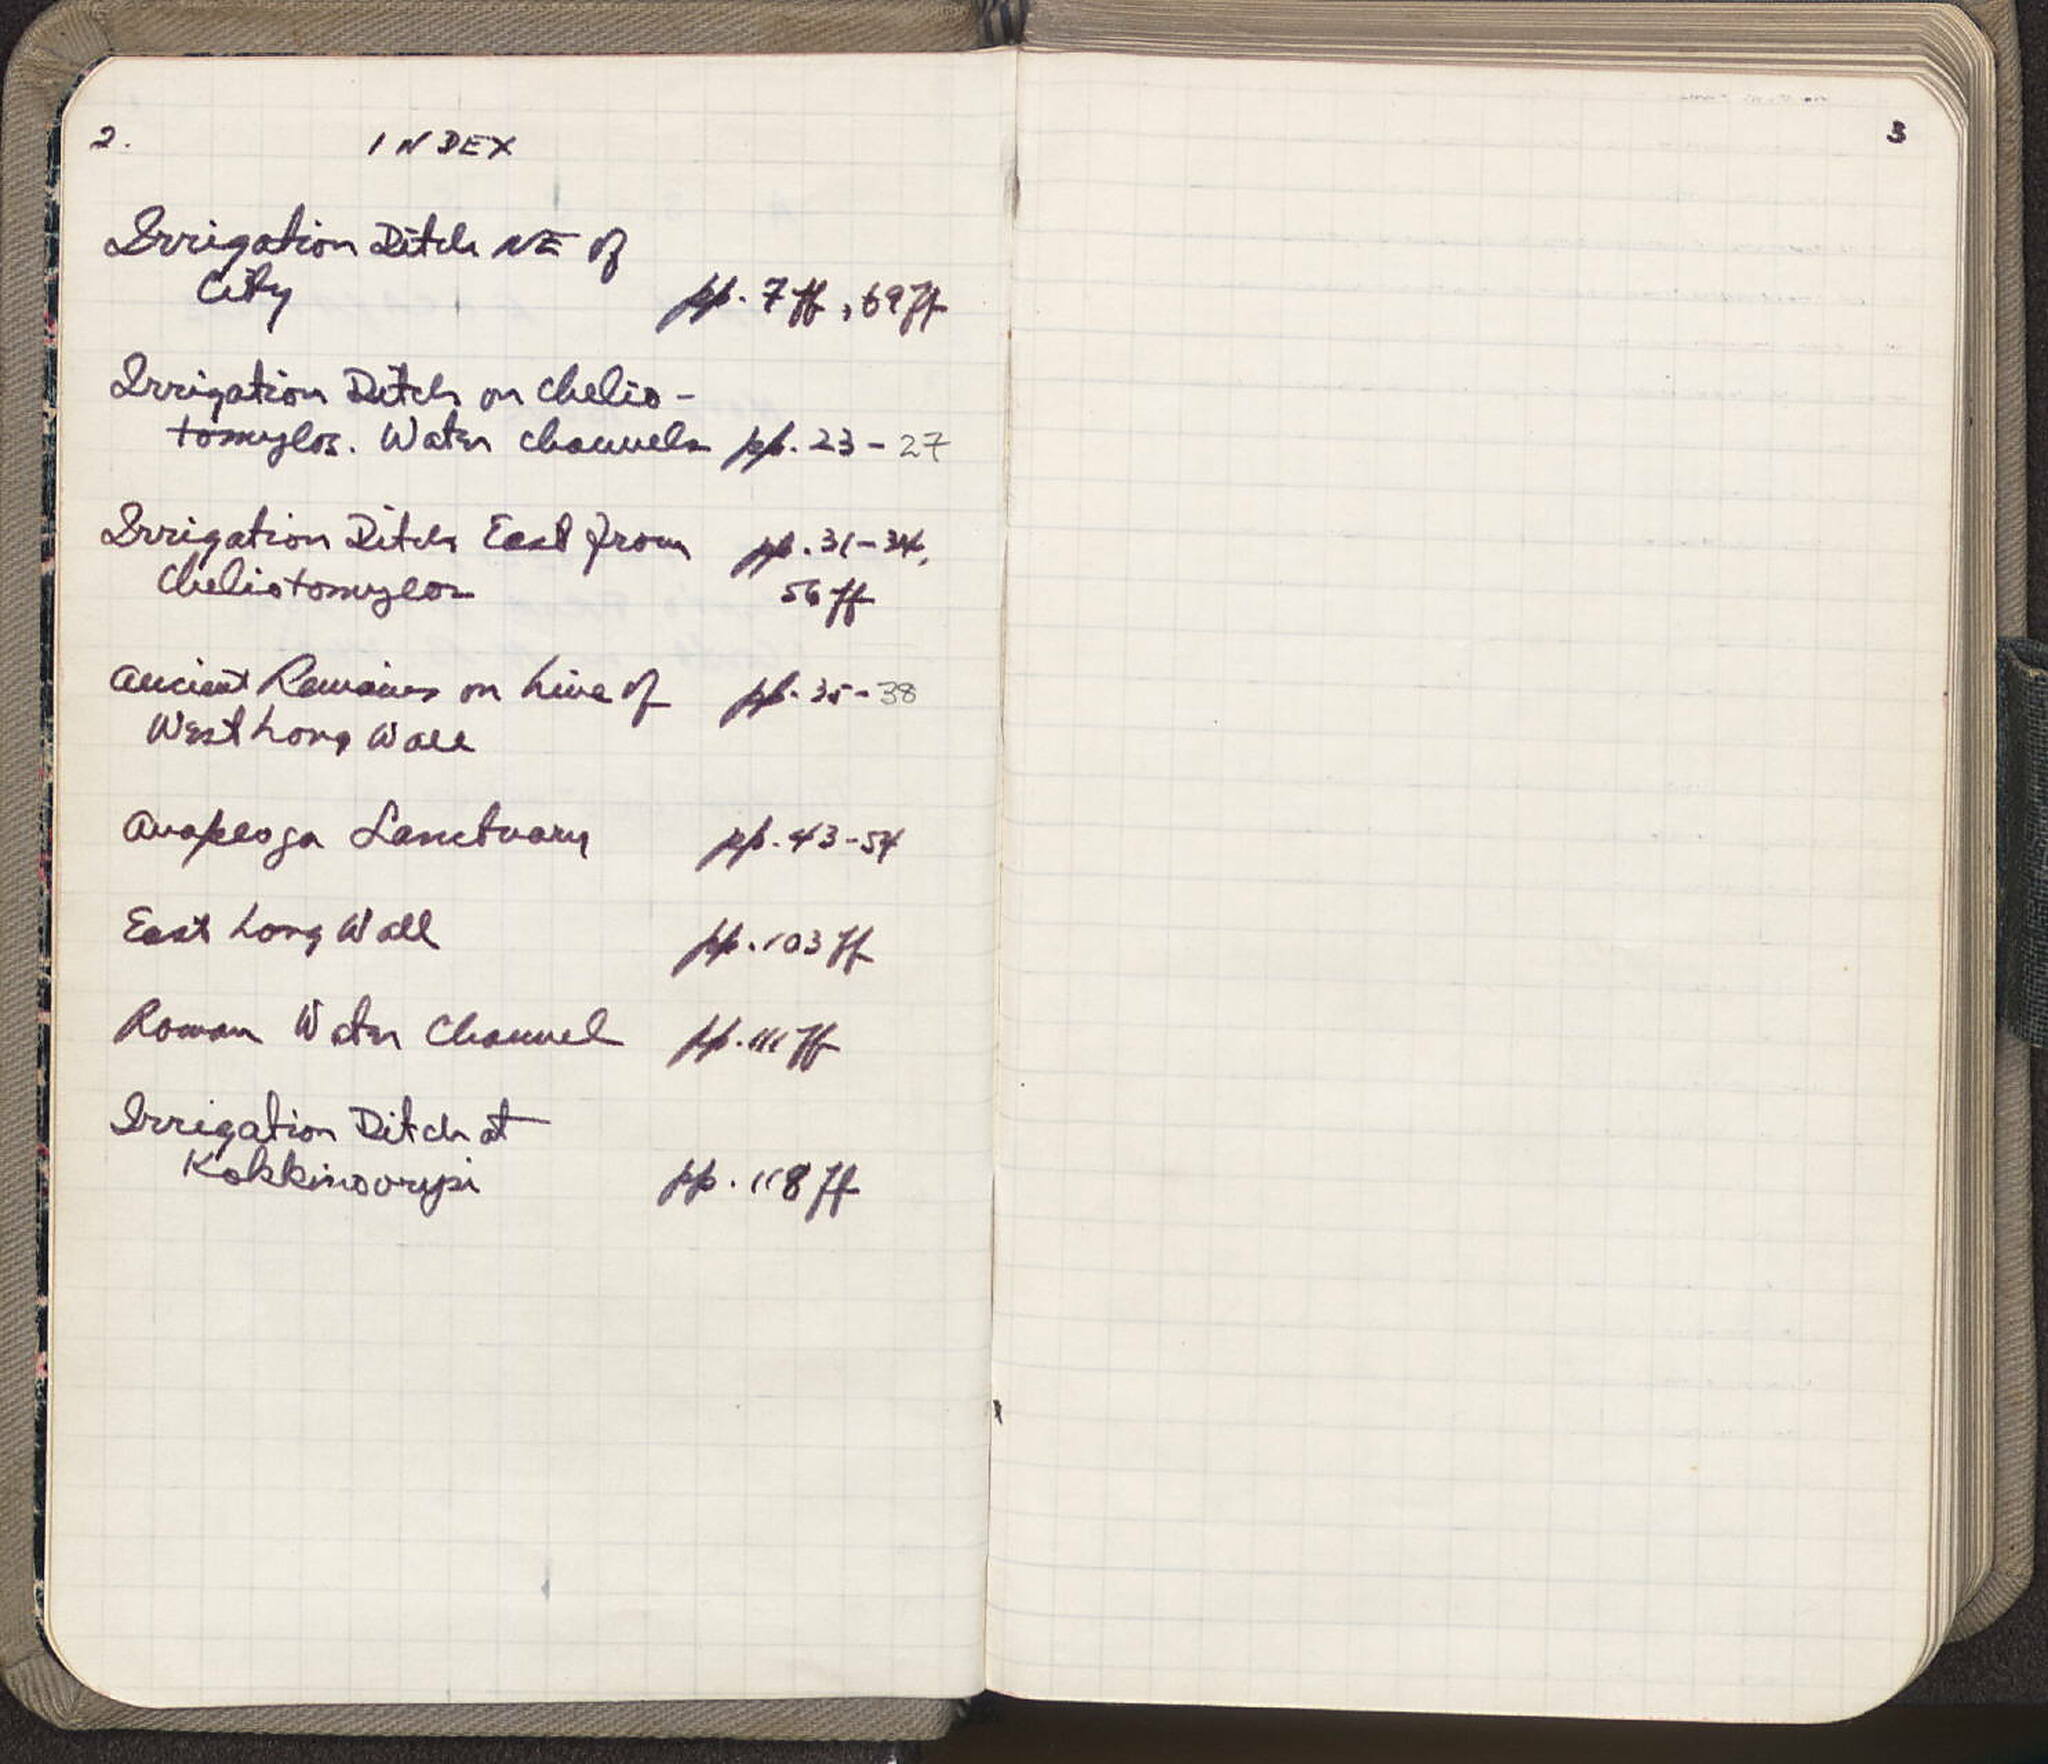 2.
INDEX
Irrigation Ditch NE of
City pp. 7ff, 69ff
Irrigation Ditch on Chelio-
tomylos. Water Channels pp. 23-27
Irrigation Ditch East from pp. 31-34,
Cheliotomylos 56ff
Ancient Remains on Line of pp. 35-38
West Long Wall
Anaploga Sanctuary pp. 43-54
East Long Wall pp. 103ff
Roman Water Channel pp. 111ff
Irrigation Ditch at
Kokkinovrysi pp. 118ff
3